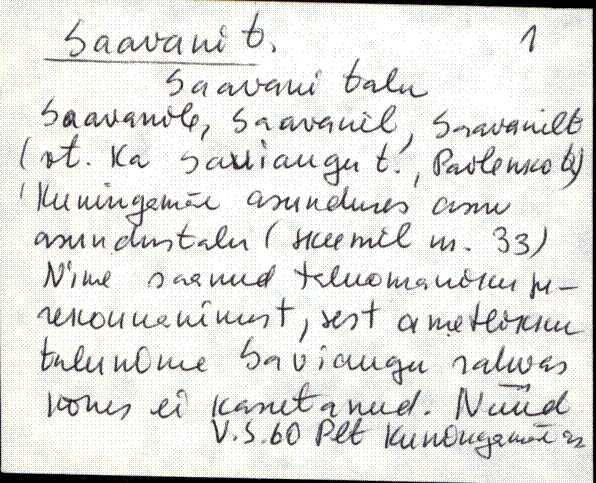 Saavani t. 1
Saavani talu
Saavanile, Saavanil, Saavanilt
(vt. ka Saviaugu t., Pavlenko t.)
Kuningamäe asunduses asuv
asundustalu (skeemil nr. 33)
Nime saanud taluomaniku pe-
rekonnanimest, sest ametlikku
talunime Saviaugu rahvas
kõnes ei kasutanud. Nüüd
V.S.60 Plt Kuningamäe as